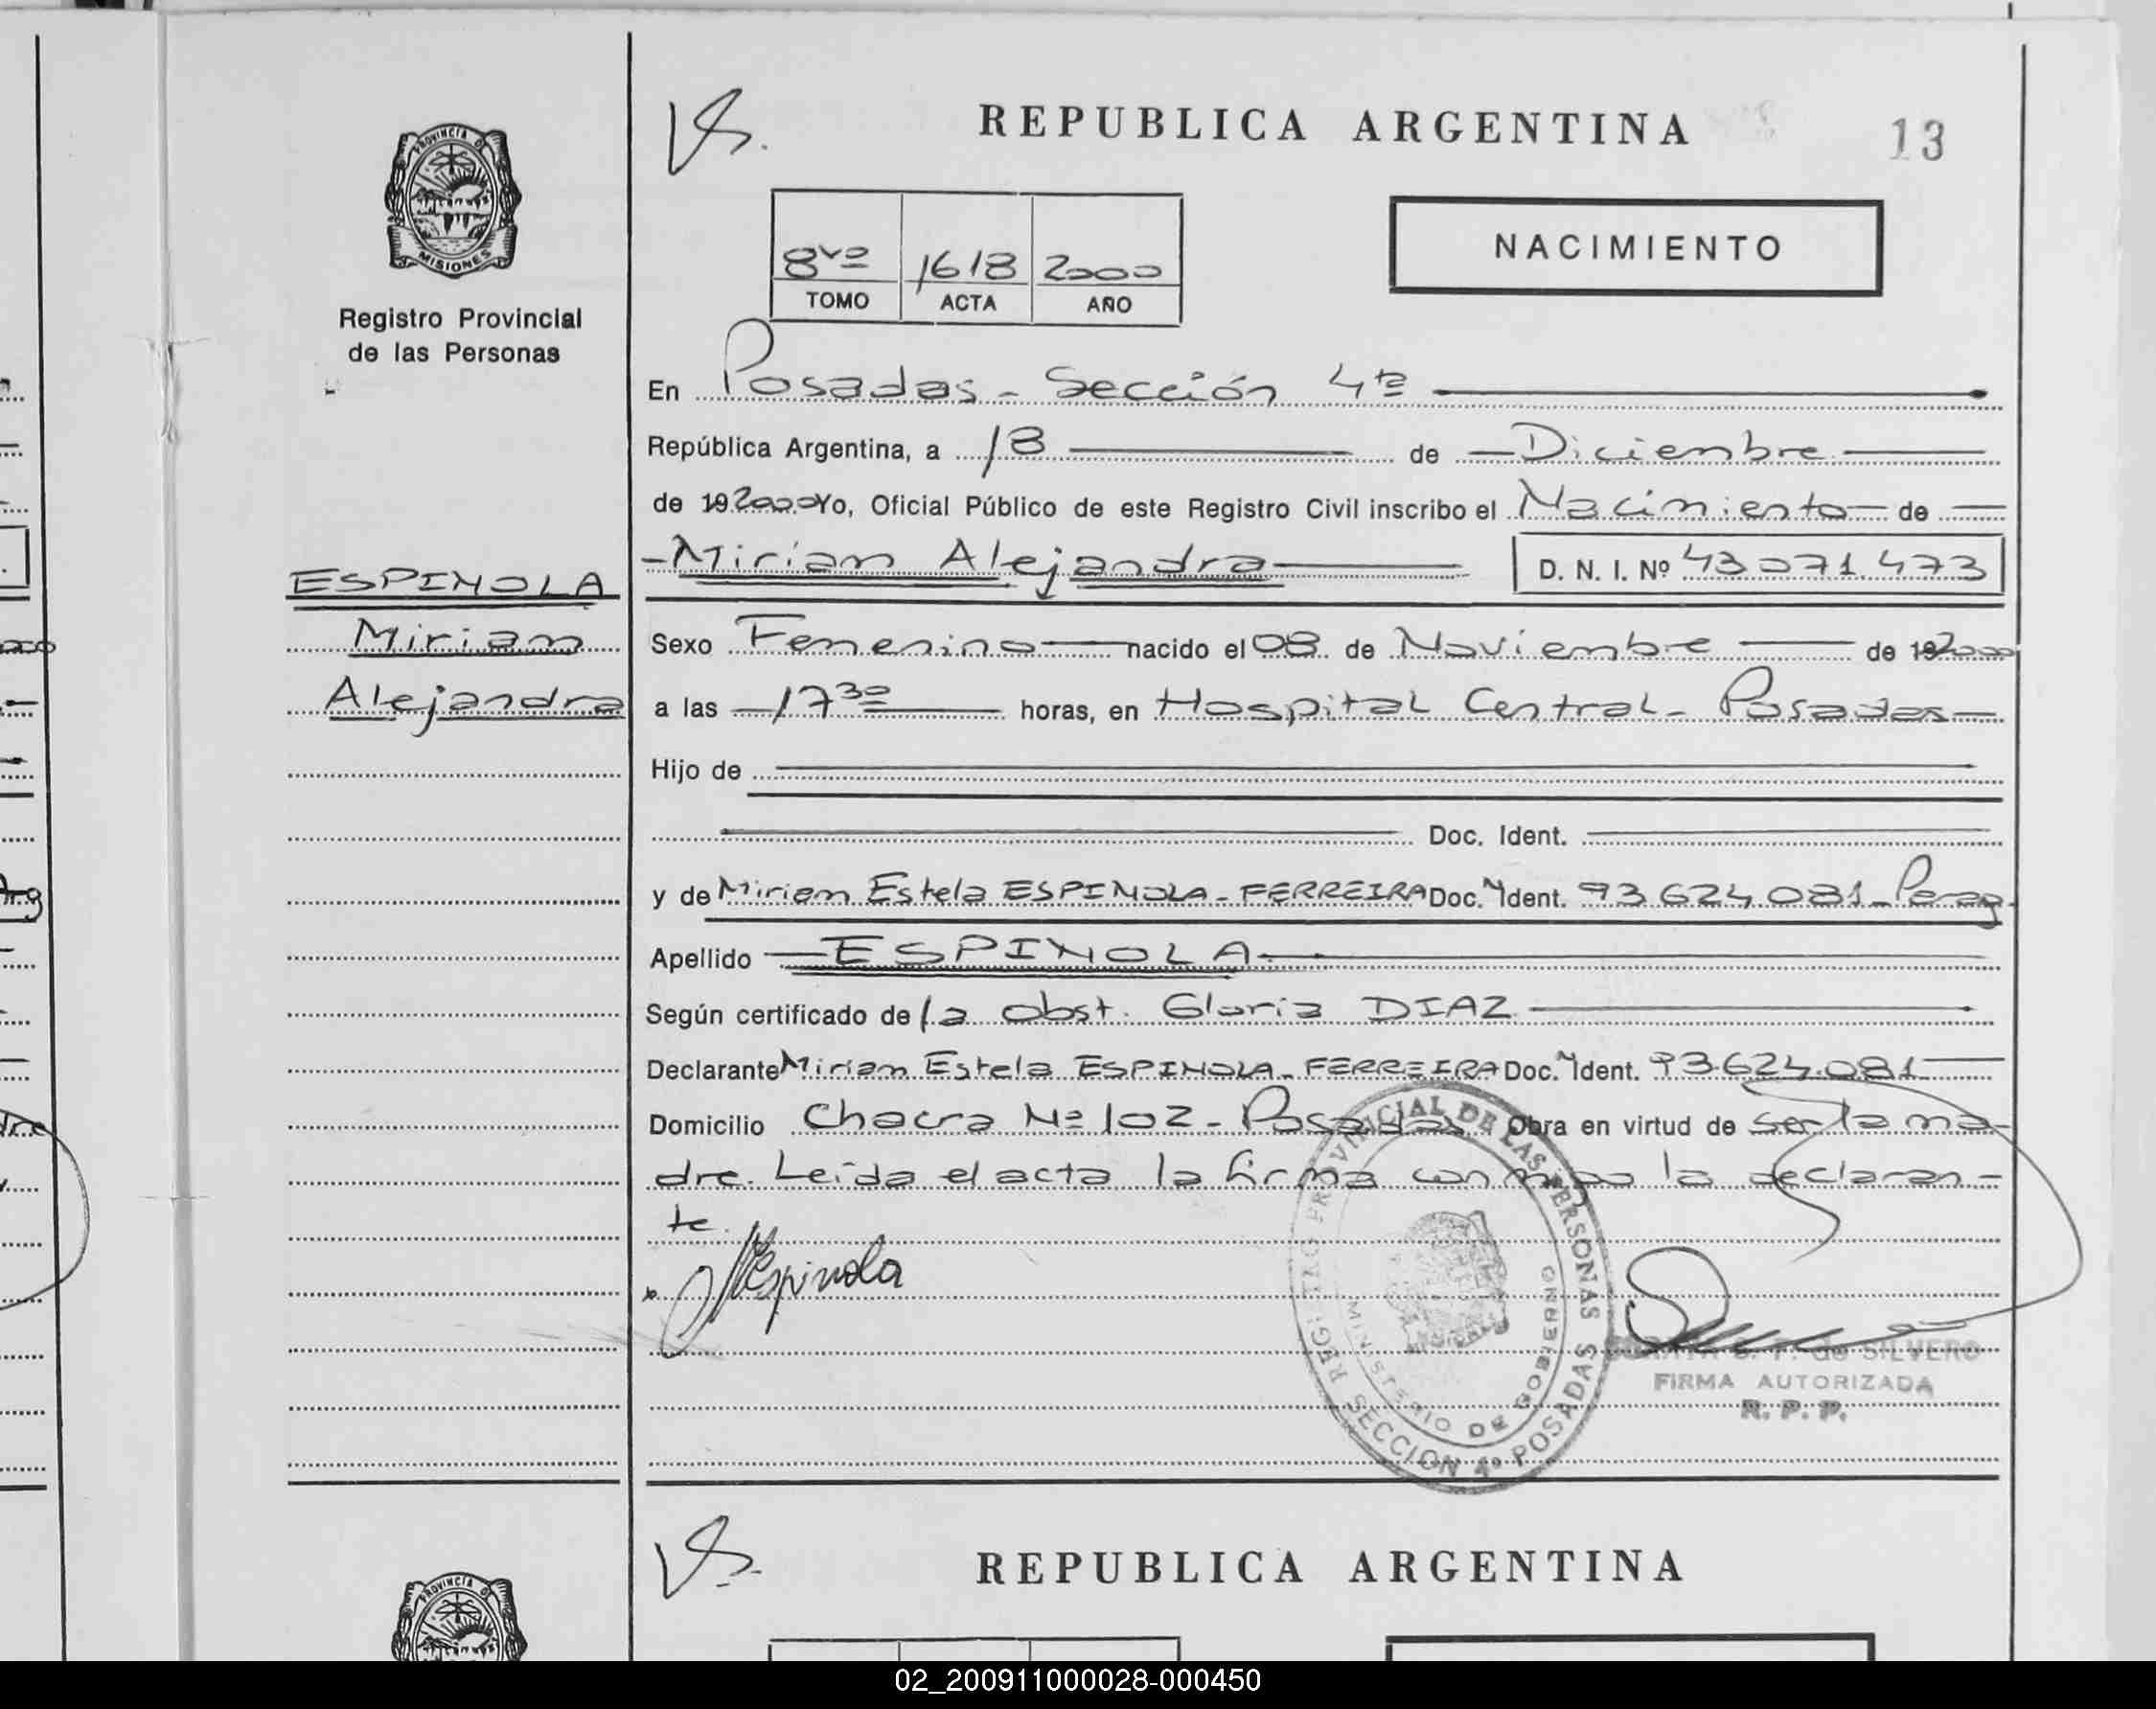 REPUBLICA ARGENTINA
13
PROVINCIA DE
MISIONES
Registro Provincial
de las Personas
8vo 1618 2000
TOMO ACTA AÑO
NACIMIENTO
En Posadas - Sección 4ta
República Argentina, a 18 de Diciembre
de 19 2000 Yo, Oficial Público de este Registro Civil inscribo el Nacimiento de
Mirian Alejandra D. N. I. Nº 43 071 473
ESPINOLA
Mirian
Alejandra
Sexo Femenino nacido el 08 de Noviembre de 19 2000
a las 17 30 horas, en Hospital Central - Posadas
Hijo de
Doc. Ident.
y de Miriam Estela ESPINOLA - FERREIRA Doc. Ident. 93 624 081 - Parag
Apellido ESPINOLA
Según certificado de la obst. Gloria DIAZ
Declarante Miriam Estela ESPINOLA - FERREIRA Doc. Ident. 93 624 081
Domicilio Chacra Nº 102 - Posadas Obra en virtud de ser la ma-
dre. Leida el acta la firma conmigo la declaran-
te.
Espinola
REGISTRO PROVINCIAL DE LAS PERSONAS
MINISTERIO DE GOBIERNO
SECCION 4º POSADAS
S. F. de SILVERO
FIRMA AUTORIZADA
R. P. P.
REPUBLICA ARGENTINA
PROVINCIA DE
02_200911000028-000450